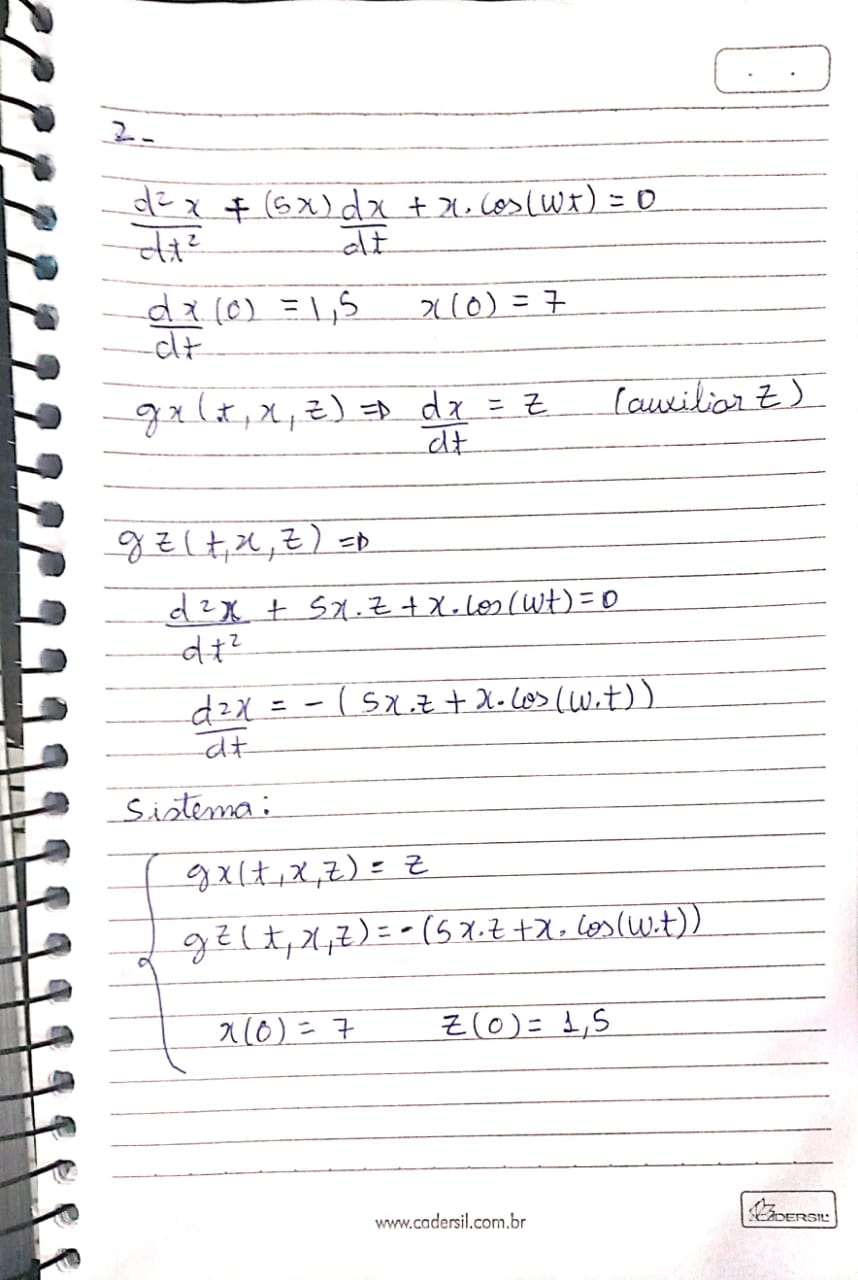 2-
d²x + (5x) dx + x. cos(wt) = 0
dt² dt
dx (0) = 1,5 x(0) = 7
dt
gx(t, x, z) => dx = z (auxiliar z)
dt
gz(t, x, z) =>
d²x + 5x.z + x.cos(wt) = 0
dt²
d²x = - (5x.z + x.cos(w.t))
dt
Sistema:
gx(t, x, z) = z
gz(t, x, z) = -(5x.z + x. cos(w.t))
x(0) = 7 z(0) = 1,5
www.cadersil.com.br
CADERSIL